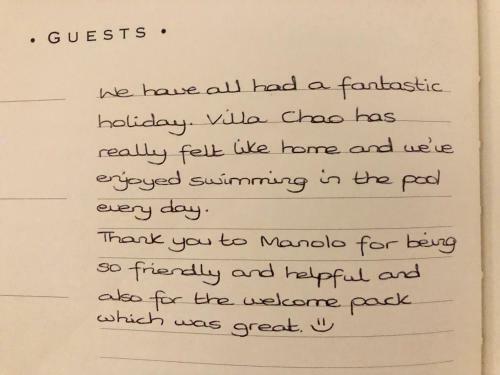 • GUESTS •
We have all had a fantastic
holiday. Villa Chao has
really felt like home and we've
enjoyed swimming in the pool
every day.
Thank you to Manolo for being
so friendly and helpful and
also for the welcome pack
which was great. :)